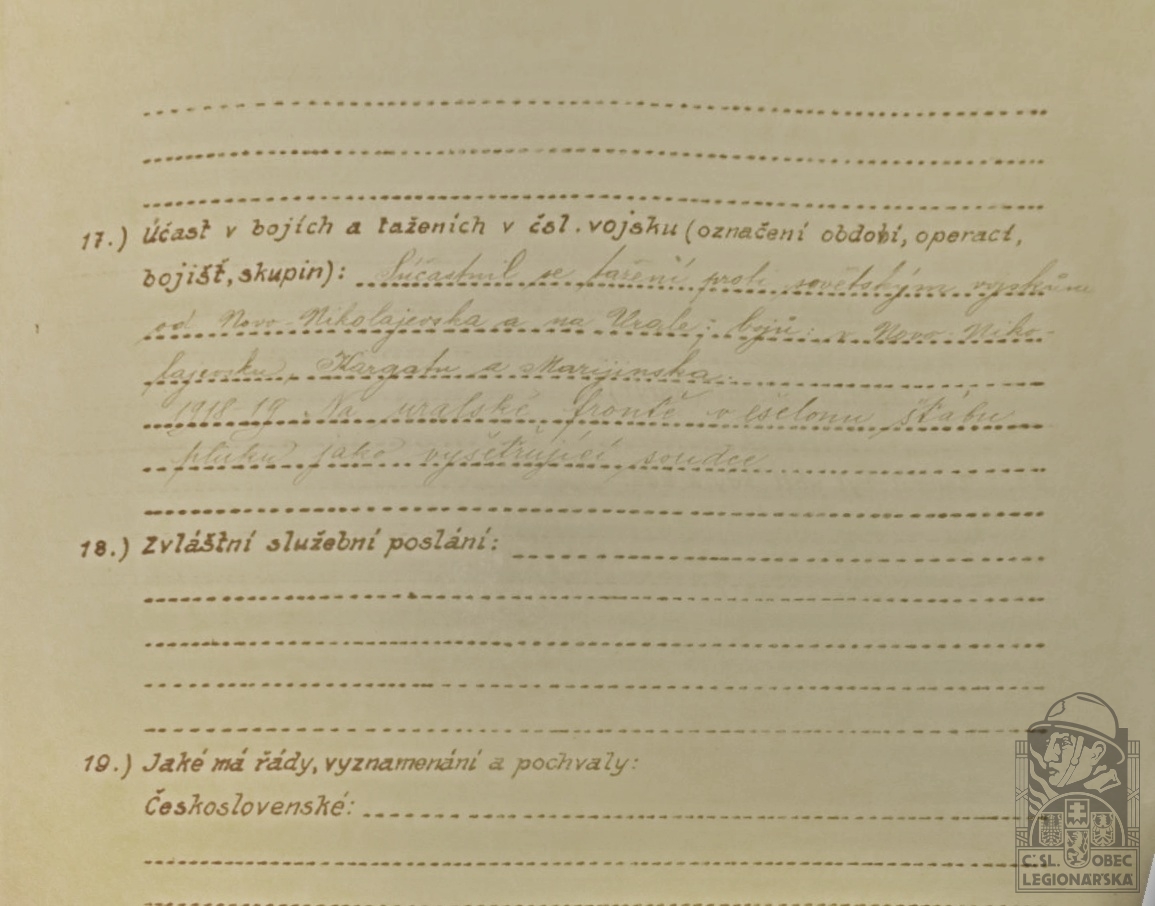 17.) Účast v bojích a taženích v čsl. vojsku (označení období, operací,
bojišť, skupin): Súčastnil se tažení proti sovětským vojskům
od Novo-Nikolajevska a na Urale; bojů: v Novo-Niko-
lajevsku, Kargatu a Marijinska.
1918-19 Na uralské frontě v ešelonu štábu
pluku jako vyšetřující soudce
18.) Zvláštní služební poslání:
19.) Jaké má řády, vyznamenání a pochvaly:
Československé:
ČSL. OBEC
LEGIONÁŘSKÁ